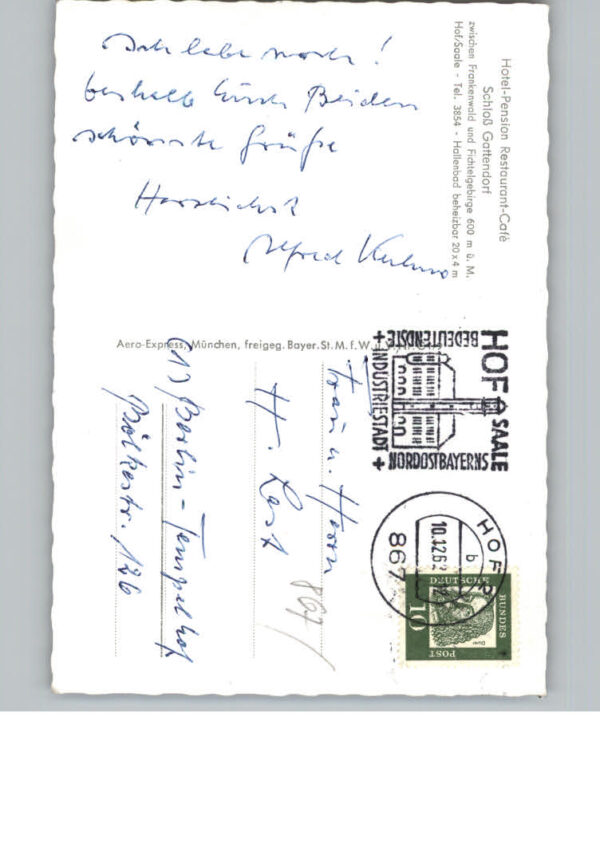 Ich lebe noch!
deshalb Euch Beiden
schönste Grüße
Herzlichst
Alfred
Hotel-Pension Restaurant-Café
Schloß Gattendorf
zwischen Frankenwald und Fichtelgebirge 600 m ü. M.
Hof/Saale - Tel. 3854 - Hallenbad beheizbar 20 x 4 m
Aero-Express, München, freigeg. Bayer. St. M. f. W.
Frau u. Herrn
H. Last
(1) Berlin-Tempelhof
Bölkestr. 126
867/
HOF SAALE
BEDEUTENDSTE
+ INDUSTRIESTADT +
NORDOSTBAYERNS
HOF
867
b
10.12.62
DEUTSCHE
BUNDES
POST
10
Dürer